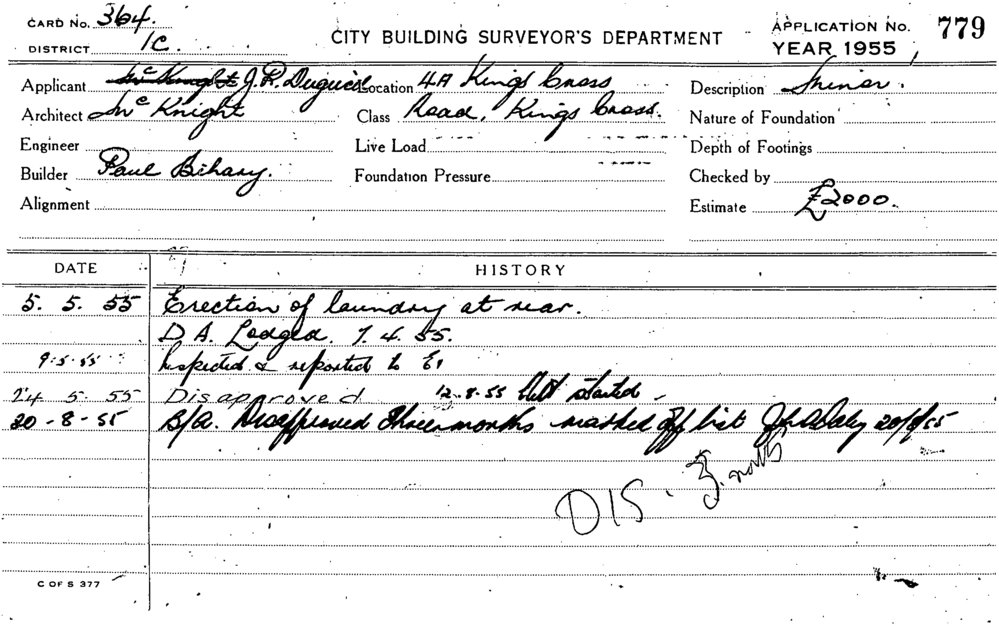 CARD No. 364.
DISTRICT 1C.
CITY BUILDING SURVEYOR'S DEPARTMENT
APPLICATION No. 779
YEAR 1955
Applicant McKnight J. R. Duguid Location 4A Kings Cross
Architect McKnight Class Road, Kings Cross.
Engineer Live Load
Builder Paul Bihary. Foundation Pressure
Alignment
Description Minor.
Nature of Foundation
Depth of Footings
Checked by
Estimate £2000.
DATE HISTORY
5. 5. 55 Erection of laundry at rear.
D.A. Lodged. 7. 4. 55.
9.5.55 Inspected & reported to
24 5. 55 Disapproved 12-8-55 Not started -
20-8-55 B/A. Disapproved three months marked off list 20/8/55
DIS. 3. mths
C OF S 377